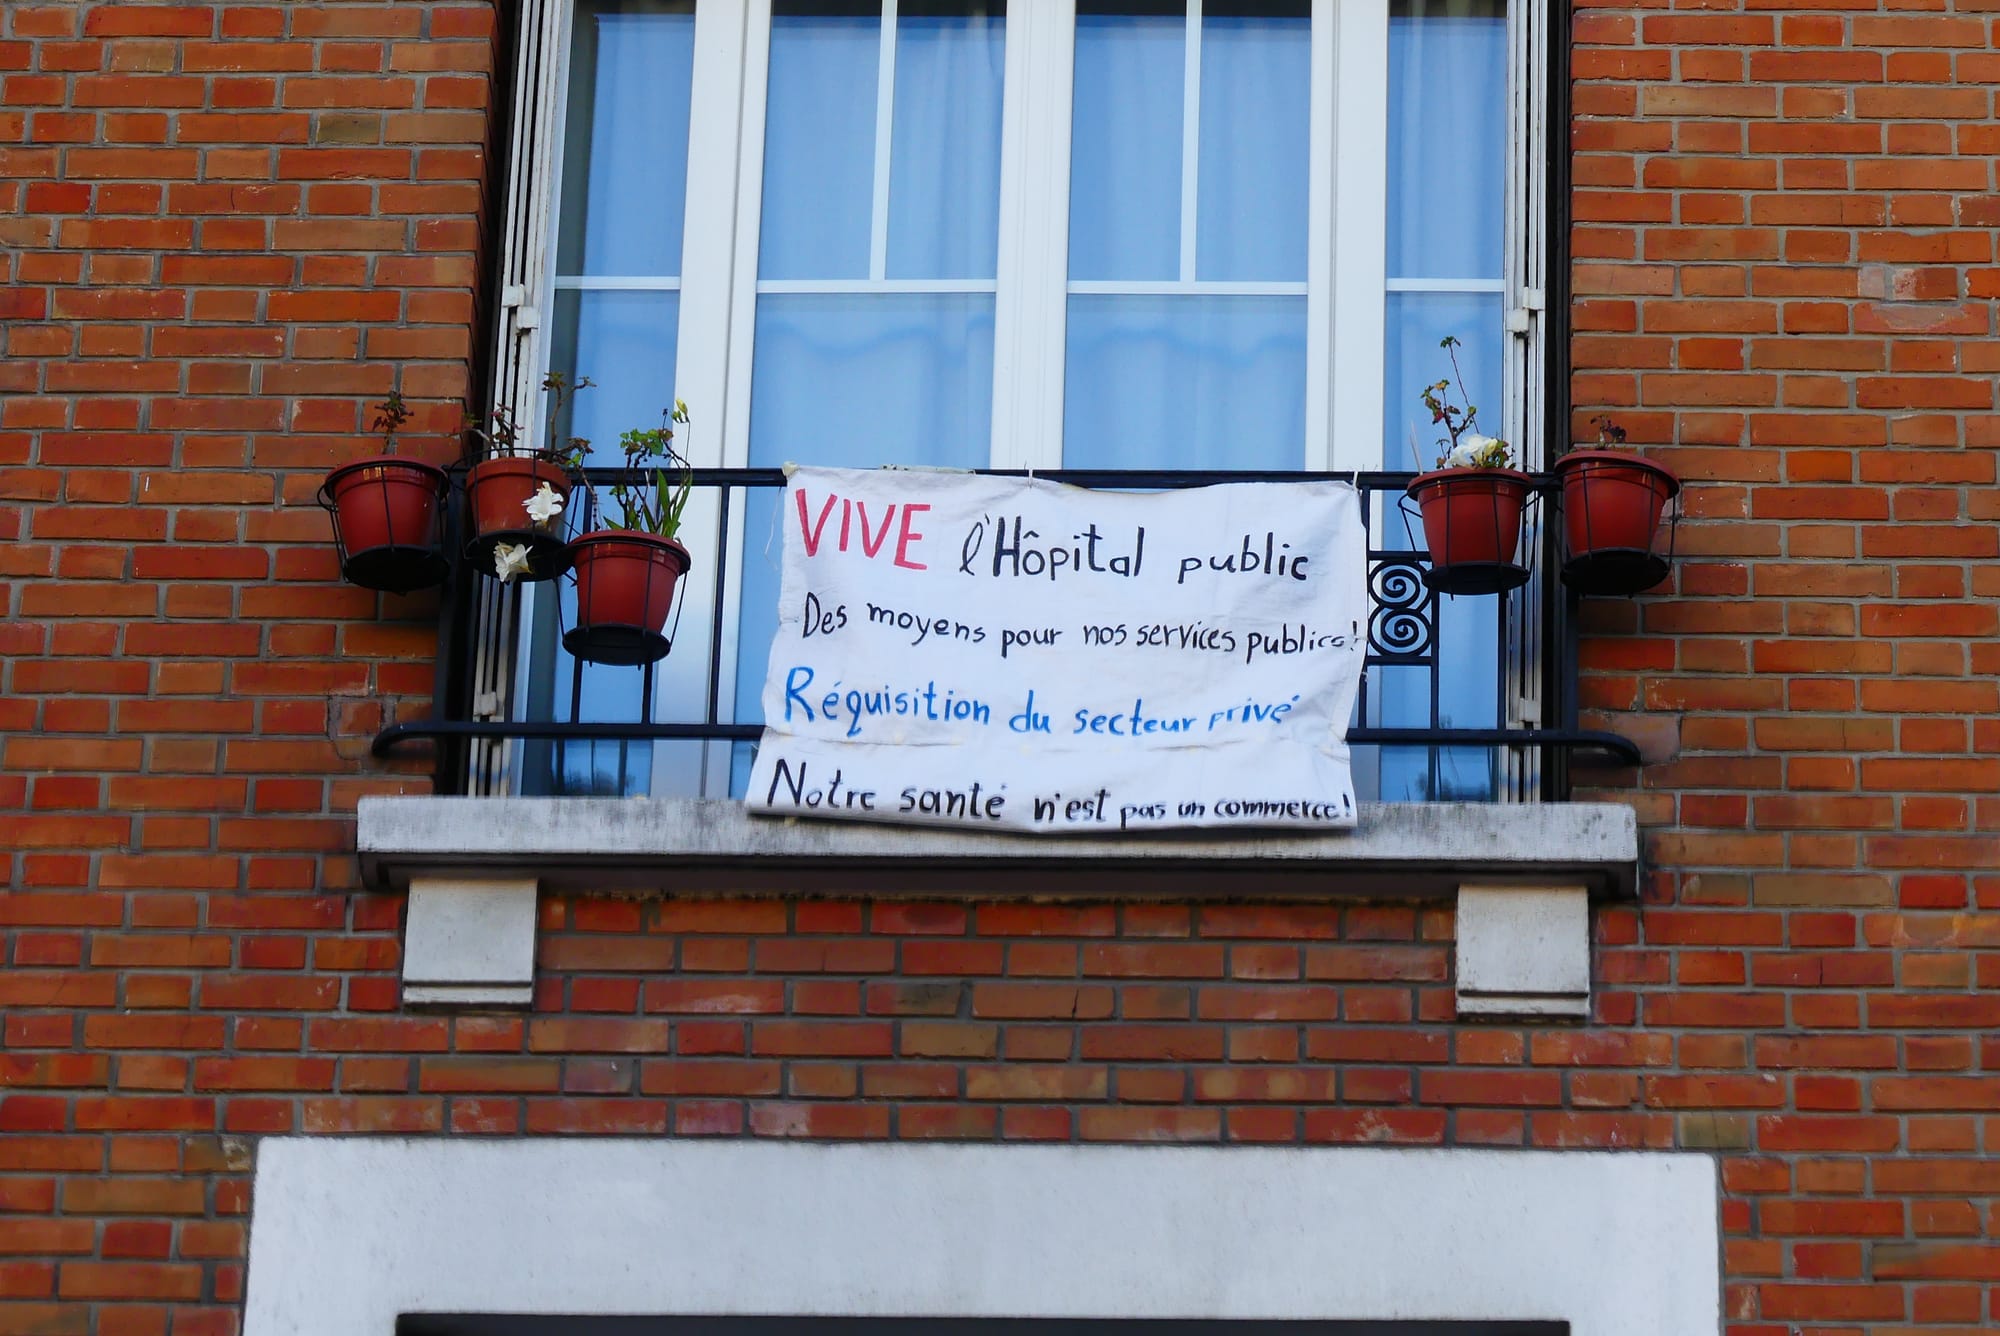 VIVE l'Hôpital public
Des moyens pour nos services publics!
Réquisition du secteur privé
Notre santé n'est pas un commerce!